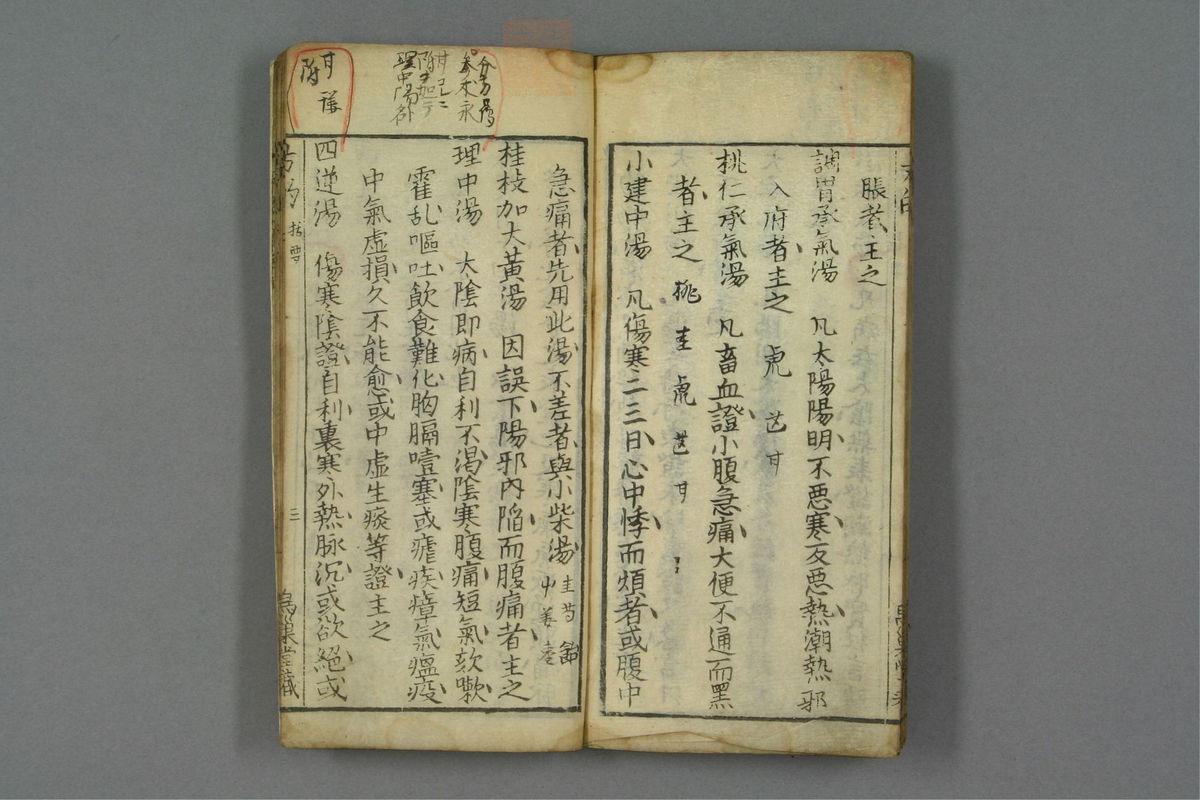 脹者主之
調胃承氣湯 凡太陽陽明不悪寒反悪熱潮熱邪
入府者主之 甘
桃仁承氣湯 凡畜血證小腹急痛大便不通而黑
者主之 桃 甘
小建中湯 凡傷寒二三日心中悸而煩者或腹中
急痛者先用此湯不差者與小柴湯
桂枝加大黃湯 因誤下陽邪内陥而腹痛者主之
理中湯 大陰即病自利不渇陰寒腹痛短氣欬嗽
霍乱嘔吐飲食難化胸膈噎塞或瘧疾瘴氣瘟疫
中氣虚損久不能愈或中虚生痰等證主之
四逆湯 傷寒陰證自利裏寒外熱脉沉或欲絕或
三